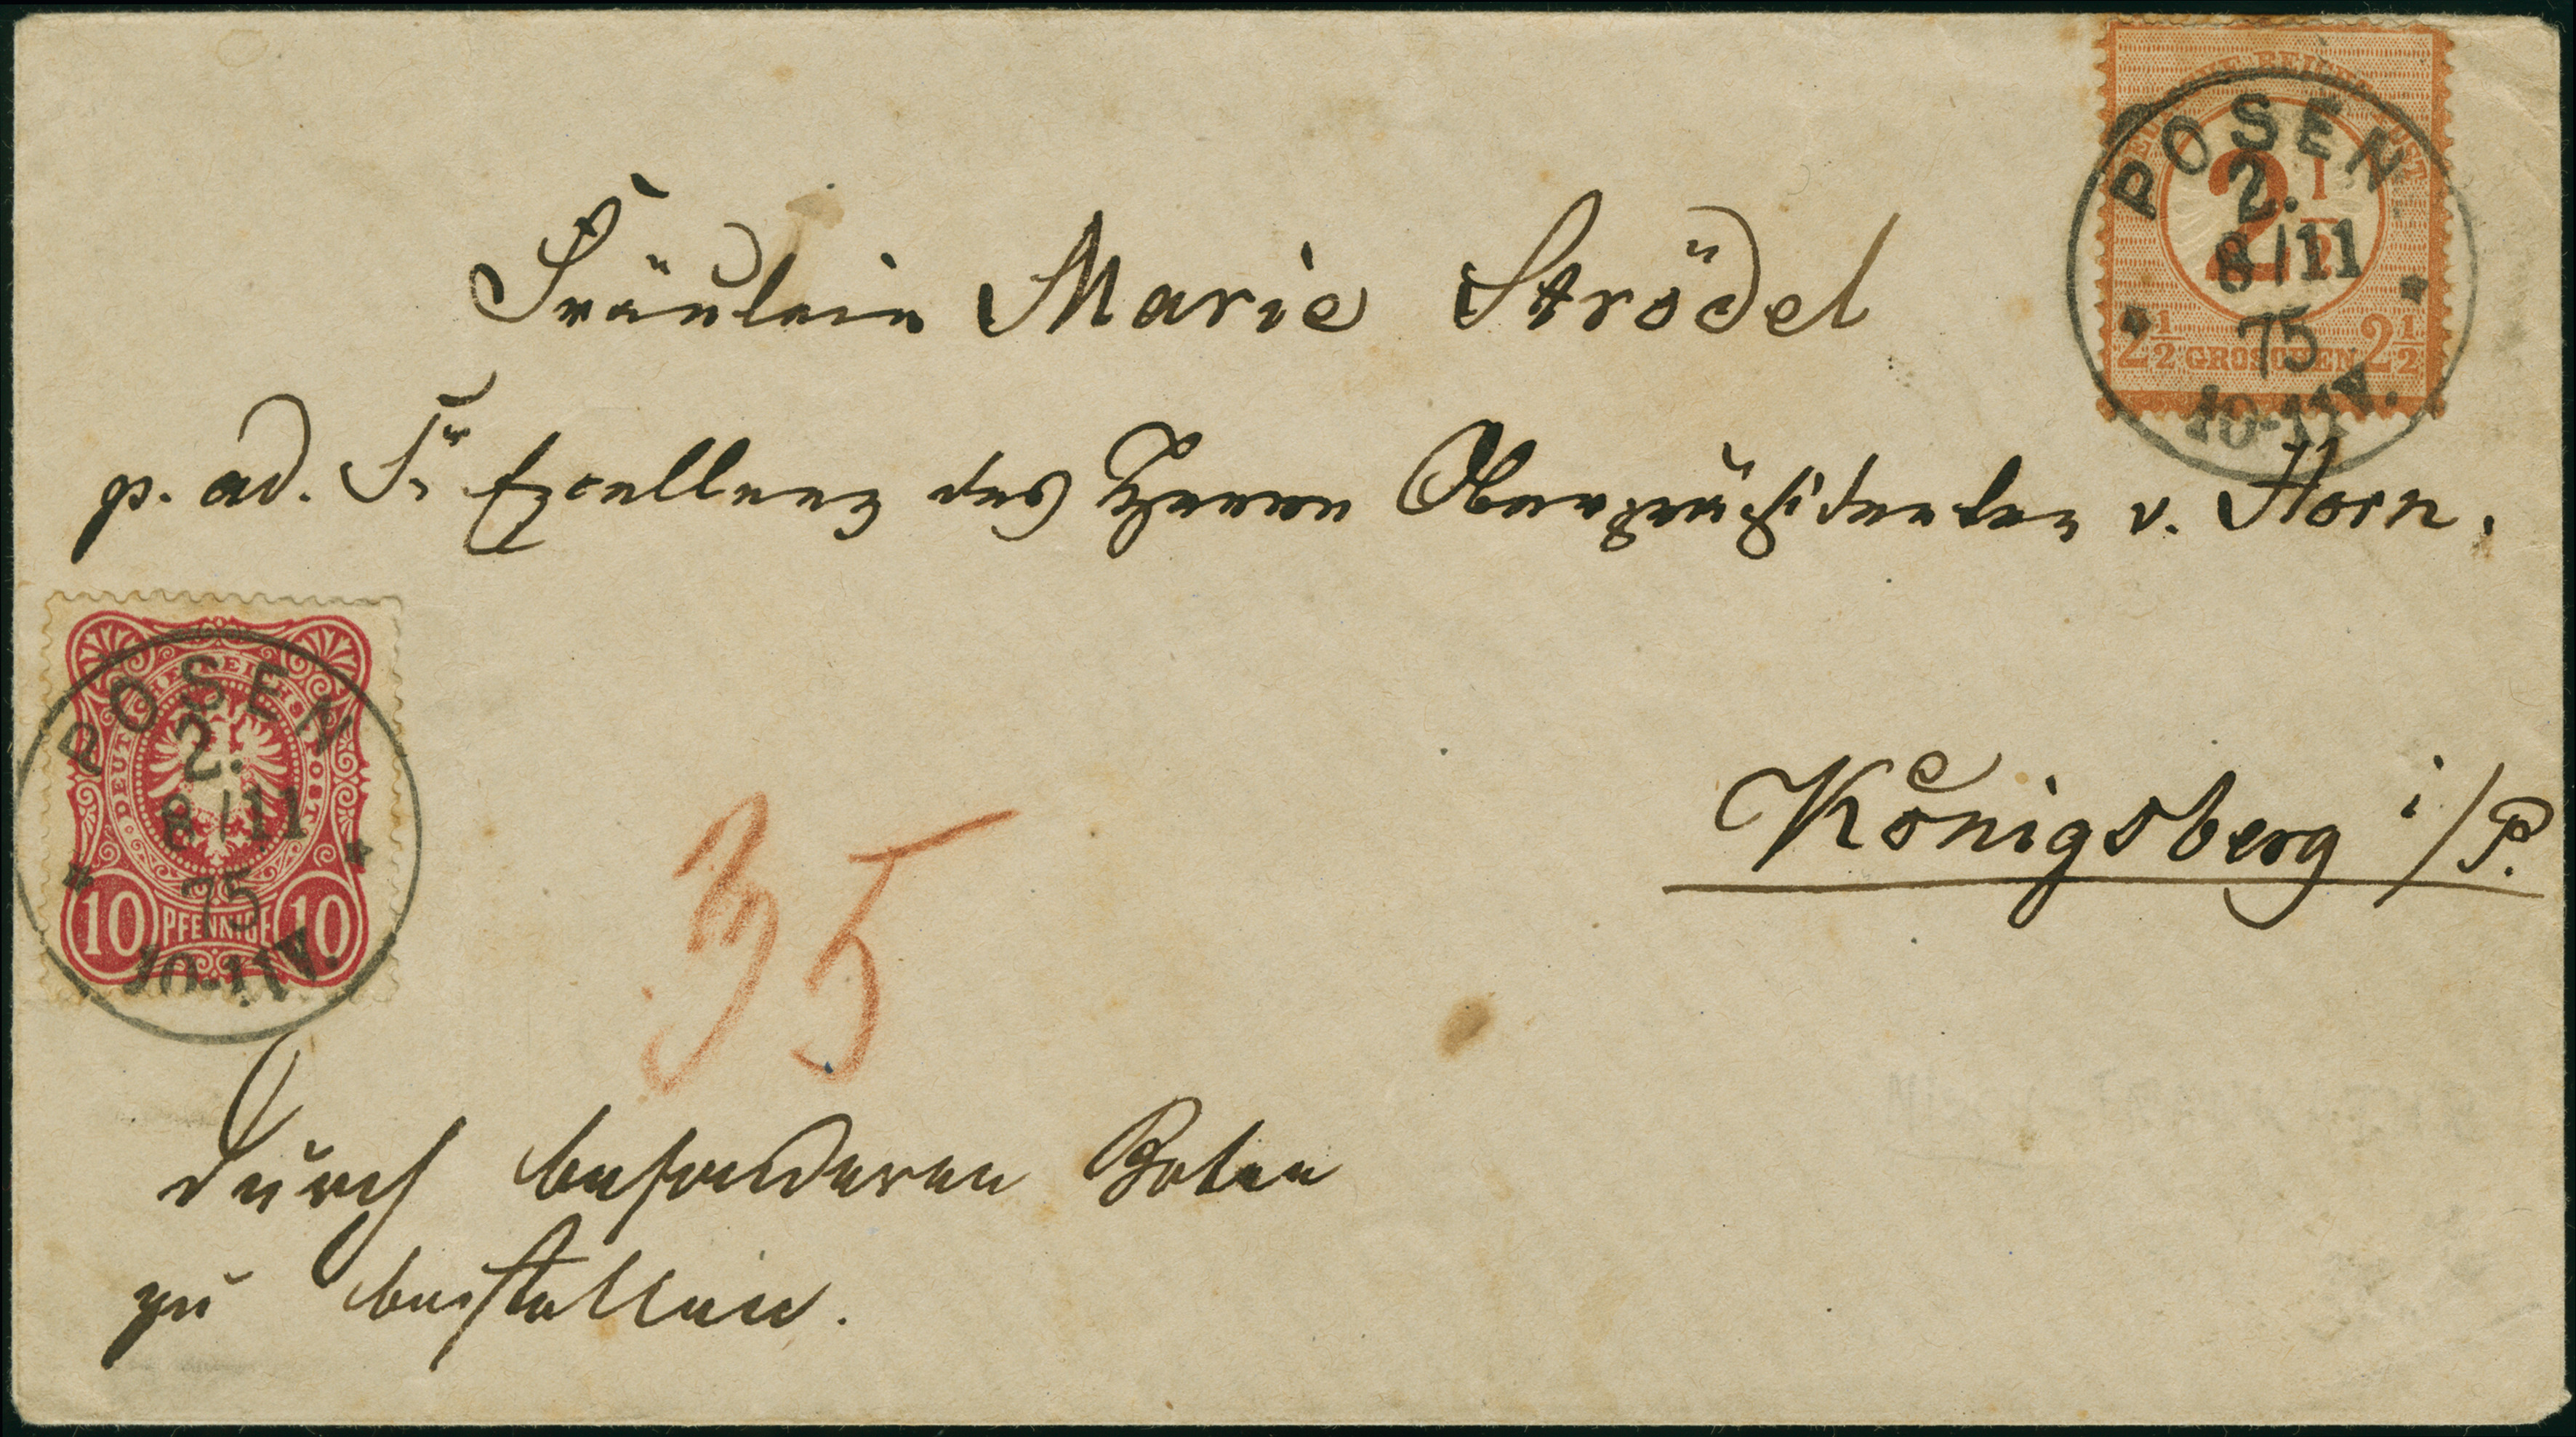 DEUTSCHE REICHS-POST
2 1/2
2 1/2 GROSCHEN 2 1/2
POSEN
2.
8/11
75
10-11V.
Fräulein Marie Strödel
p. ad. Sr Excellenz des Herrn Oberpräsidenten v. Horn.
DEUTSCHE REICHS-POST
10 PFENNIGE 10
POSEN
2.
8/11
75
10-11V.
Königsberg i/P.
35
durch besonderen Boten
zu bestellen.